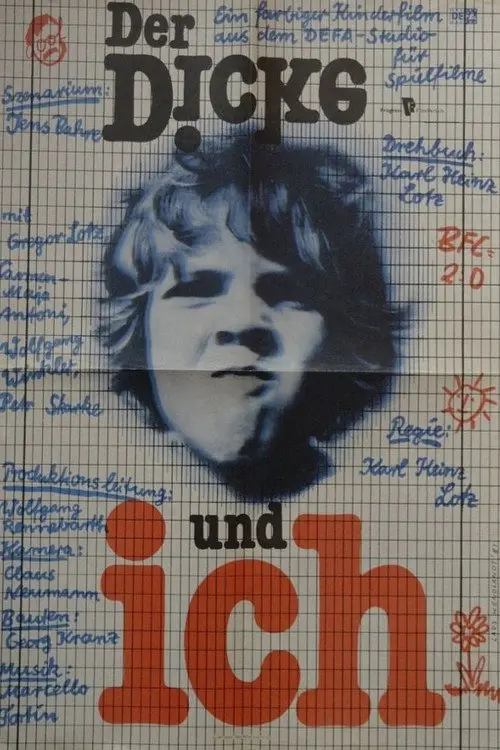 Der
DickE
Ein farbiger Kinderfilm
aus dem DEFA-Studio
für
Spielfilme
DEFA
Szenarium:
Jens Bahre
Drehbuch:
Karl Heinz
Lotz
mit
Gregor Lotz
Carmen-
Maja
Antoni,
Wolfgang
Winkler,
Petr Skarke
BFC:
2:0
Regie:
Karl Heinz
Lotz
Produktionsleitung:
Wolfgang
Rennebarth
Kamera:
Claus
Neumann
Bauten:
Georg Kranz
Musik:
Marcello
Fortin
und
ich